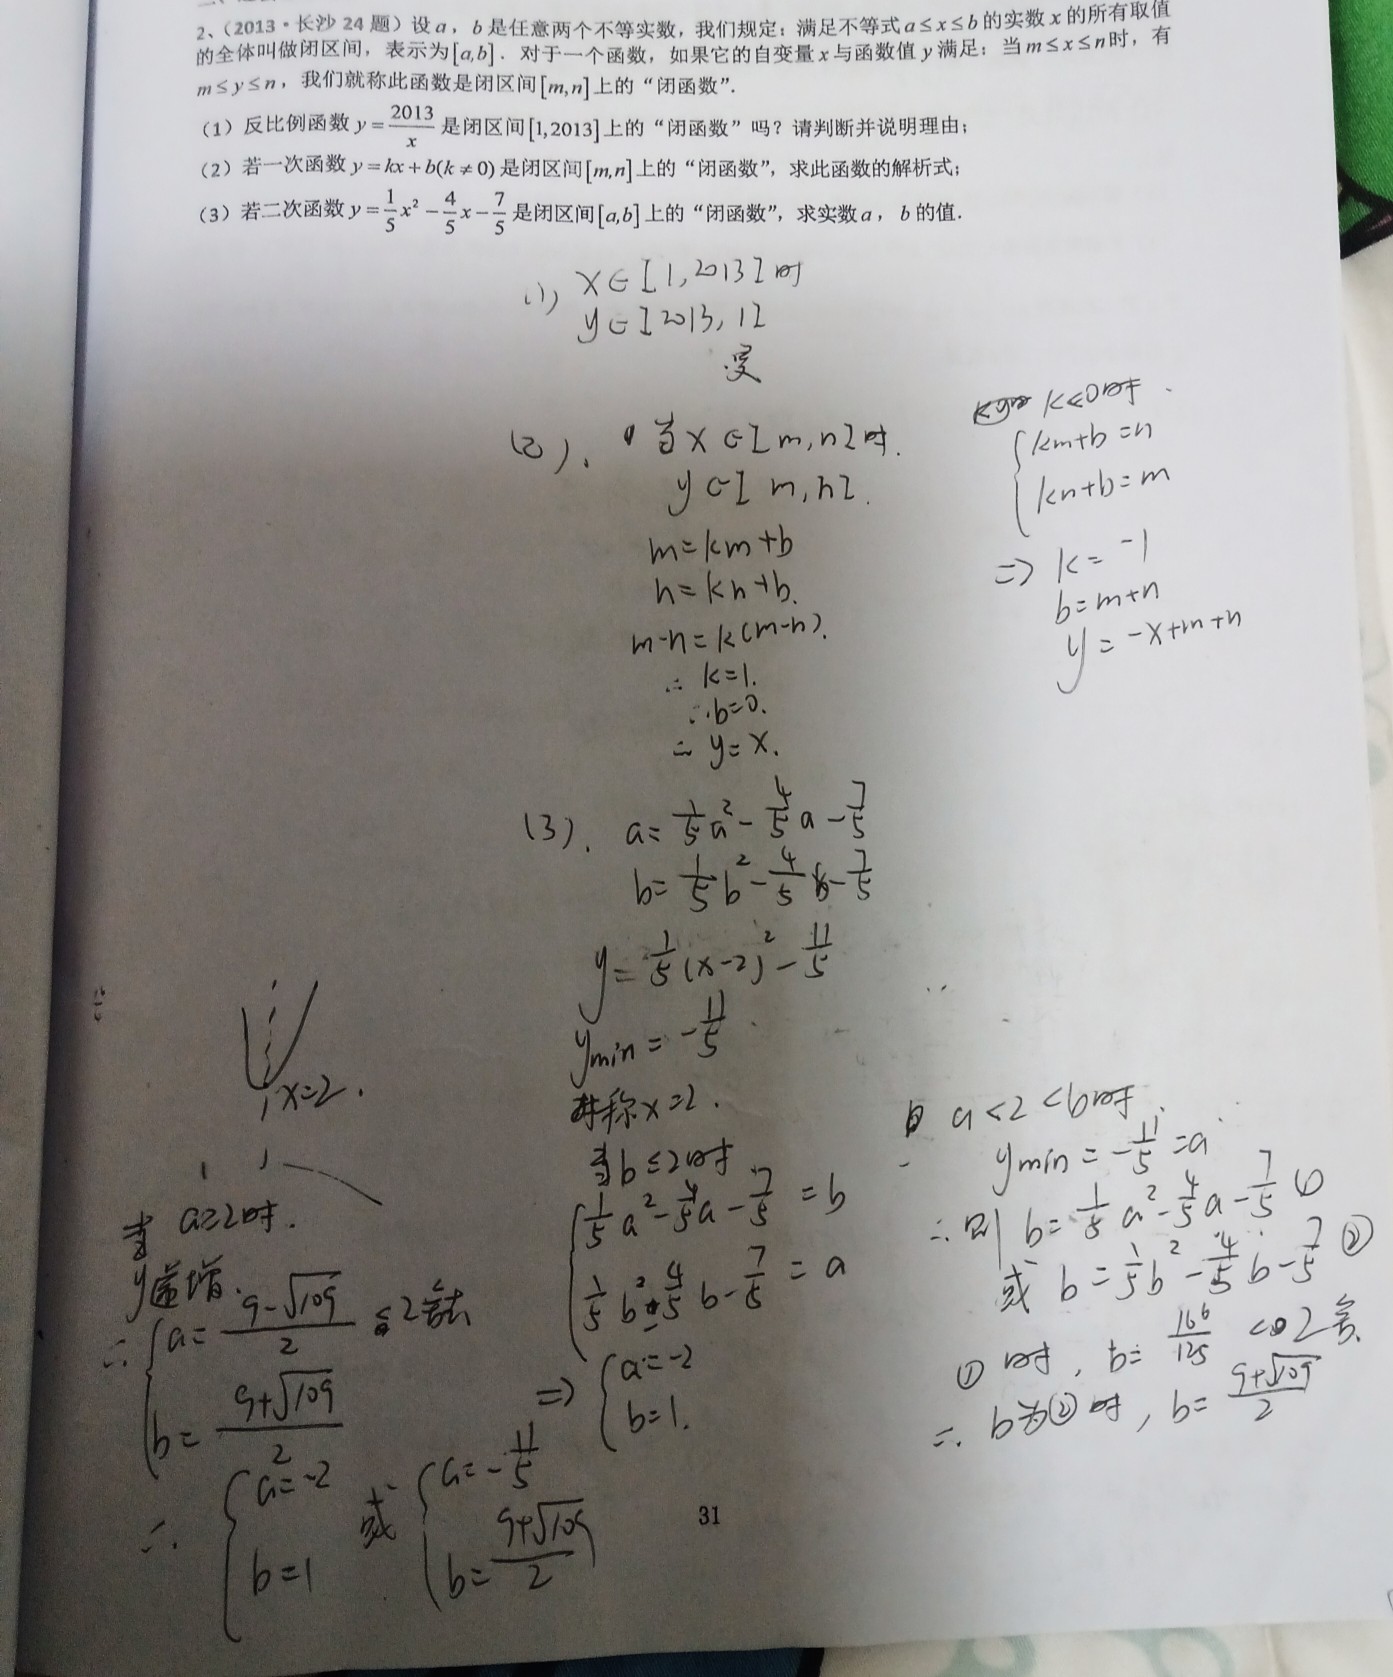 2、(2013·长沙 24 题)设a，b是任意两个不等实数，我们规定：满足不等式a≤x≤b的实数x的所有取值
的全体叫做闭区间，表示为[a,b]．对于一个函数，如果它的自变量x与函数值y满足：当m≤x≤n时，有
m≤y≤n，我们就称此函数是闭区间[m,n]上的“闭函数”.
(1)反比例函数y=2013/x是闭区间[1,2013]上的“闭函数”吗？请判断并说明理由；
(2)若一次函数y=kx+b(k≠0)是闭区间[m,n]上的“闭函数”，求此函数的解析式；
(3)若二次函数y=1/5x²-4/5x-7/5是闭区间[a,b]上的“闭函数”，求实数a，b的值.
(1), x∈[1,2013]时
y∈[2013,1]
(2). 当x∈[m,n]时.
y∈[m,n].
m=km+b
n=kn+b.
m-n=k(m-n).
∴ k=1.
∴b=0.
∴ y=x.
k<0时.
km+b=n
kn+b=m
=> k=-1
b=m+n
y=-x+m+n
(3). a=1/5a²-4/5a-7/5
b=1/5b²-4/5b-7/5
y=1/5(x-2)²-11/5
ymin=-11/5
对称x=2.
当b≤2时
1/5a²-4/5a-7/5=b
1/5b²-4/5b-7/5=a
=> a=-2
b=1.
x=2.
当 a≥2时.
y递增.
∴ a=(9-√109)/2 ≤2舍去
b=(9+√109)/2
a<2<b时.
ymin=-11/5=a
∴则 b=1/5a²-4/5a-7/5 ①
或 b=1/5b²-4/5b-7/5 ②
①时, b=166/125 <2舍.
∴ b为②时, b=(9+√109)/2
∴ a=-2 或 a=-11/5
b=1 b=(9+√109)/2
31